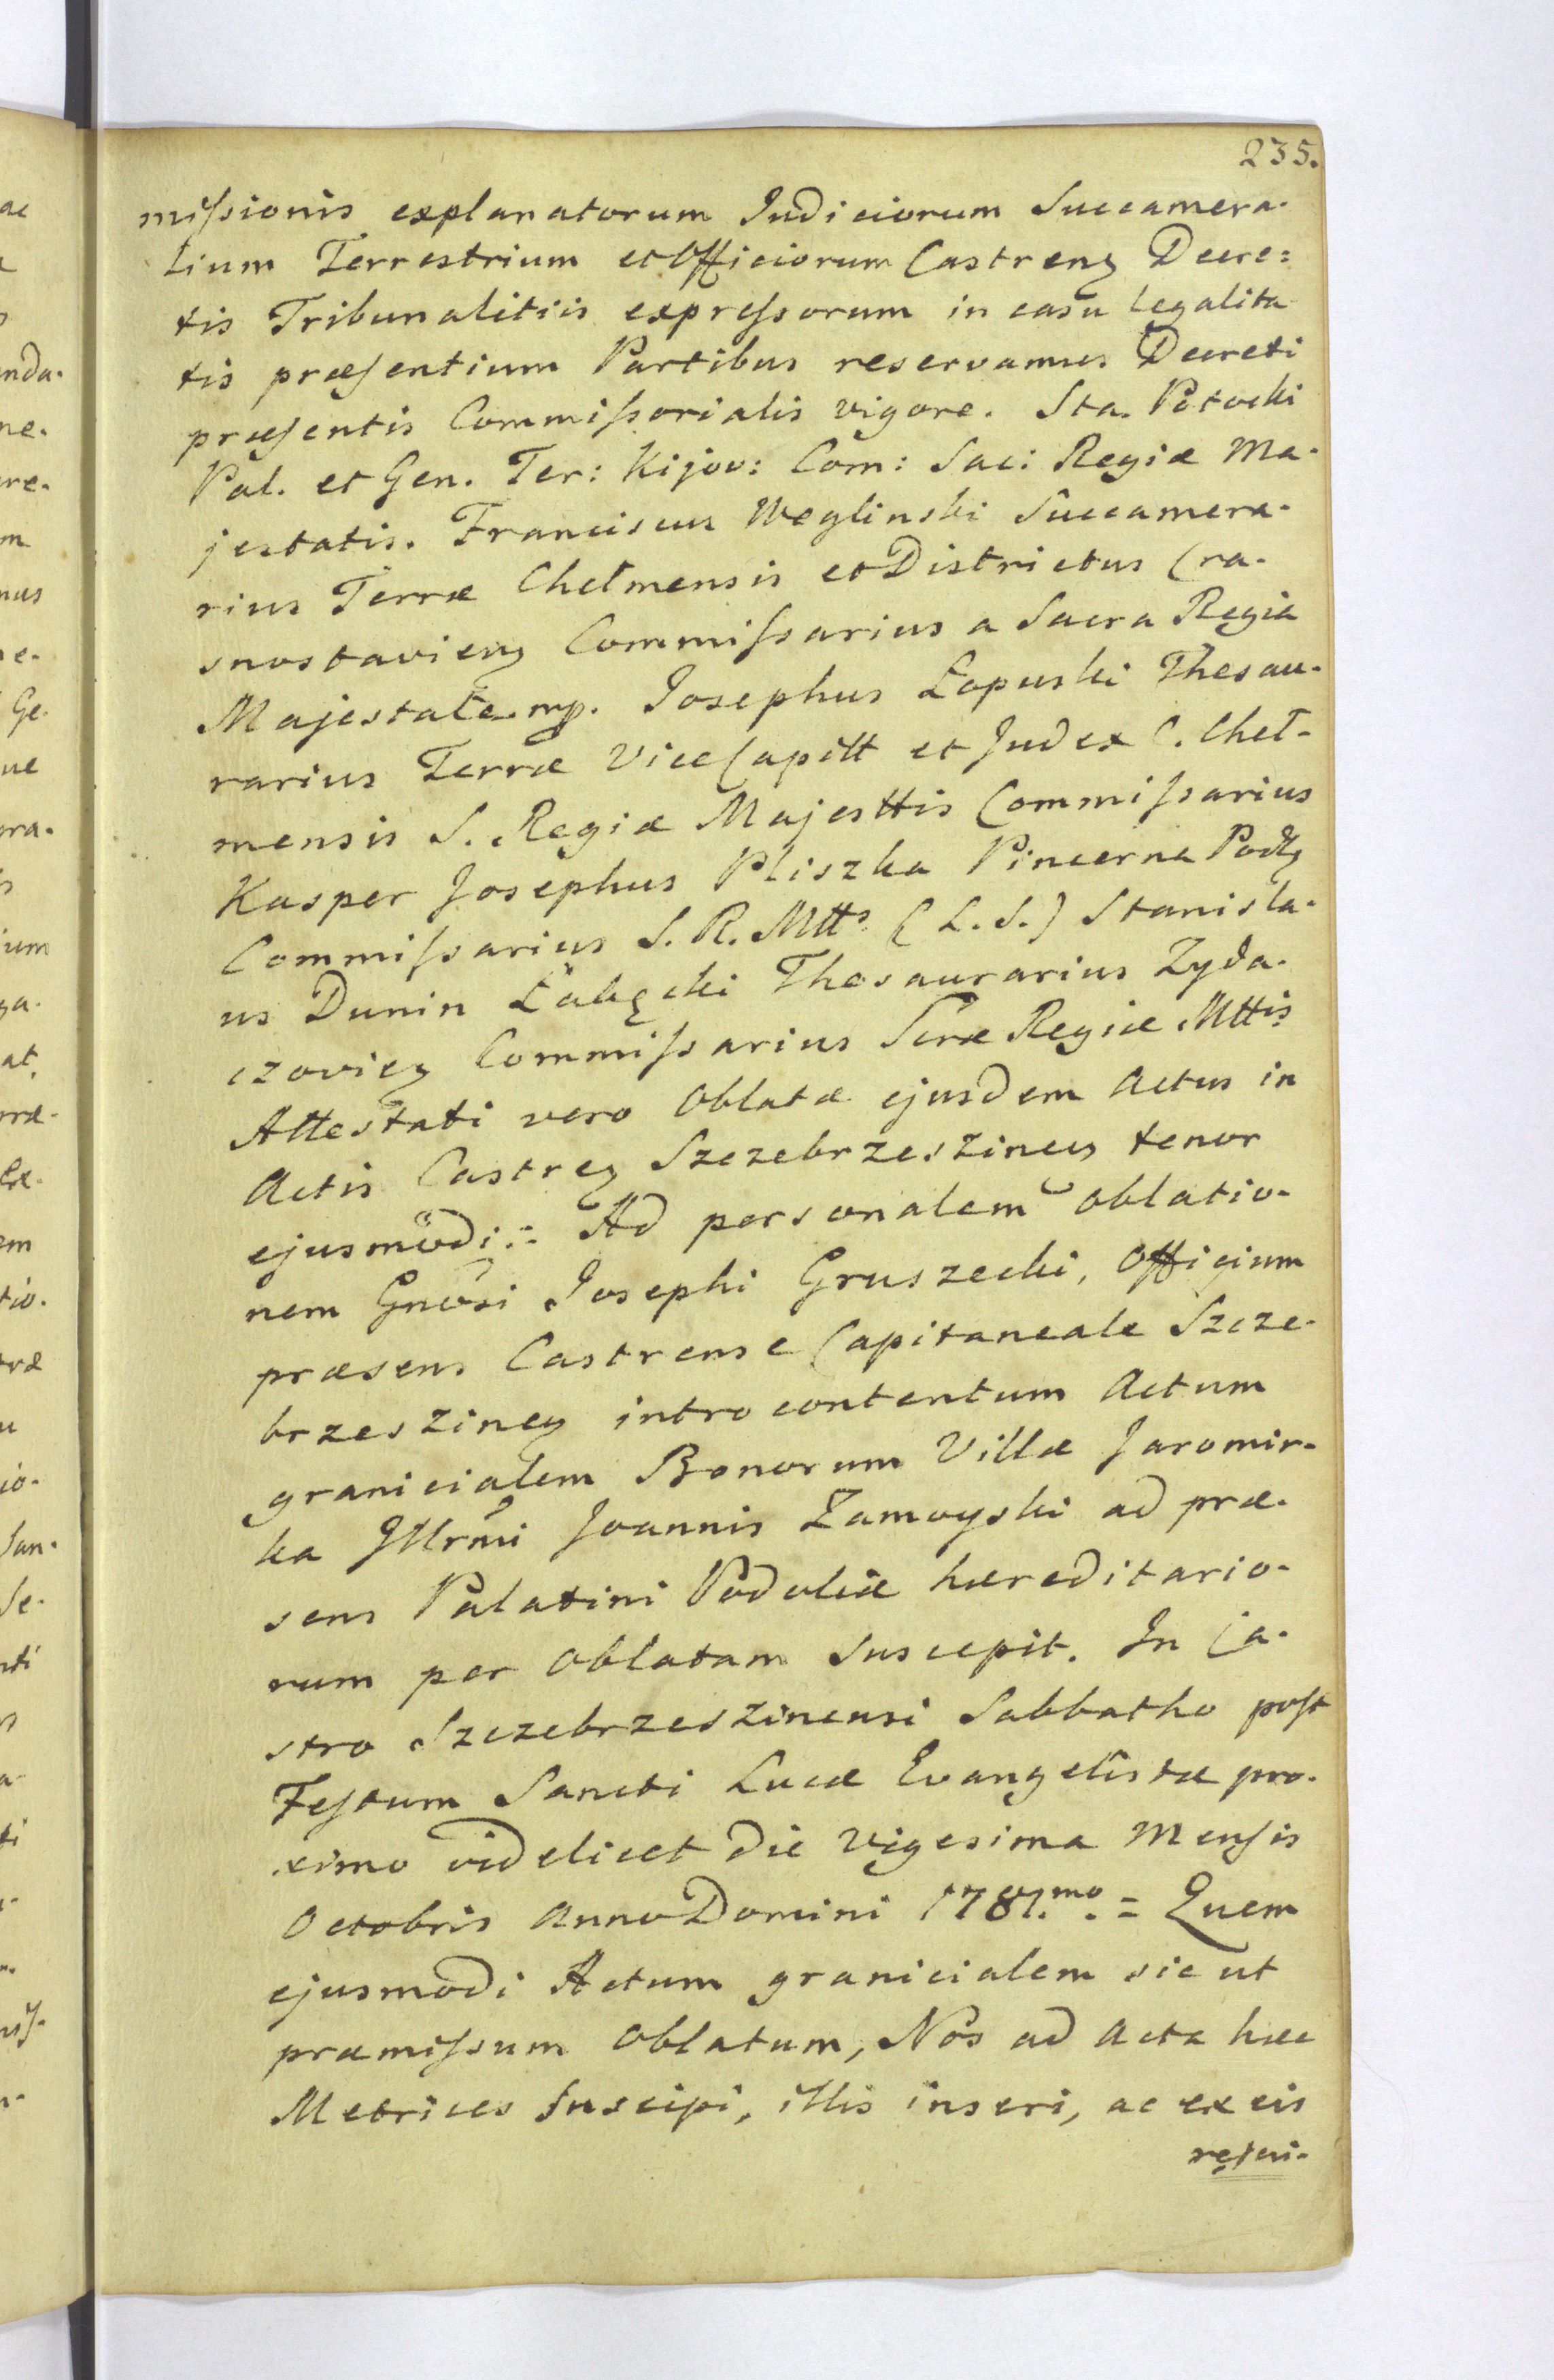 235.
miſsionis explanatorum Judiciorum Succamera-
lium Terrestrium et Officiorum Castrenȝ Decre=
tis Tribunalitiis expreſsorum in casu legalita
tis præſentium Partibus reservamus Decreti
præſentis Commiſsorialis vigore. Sta. Potocki
Pal. et Gen. Ter: Kijov: Com: Sac: Regiæ Ma-
jestatis. Franciscus Węglinski Succamera-
rius Terræ Chełmensis et Districtus Cra-
snostavienȝ Commiſsarius a Sacra Regia
Majestate. mp. Josephus Łopuski Thesau-
rarius Terræ ViceCapitt et Judex C. Cheł-
mensis S. Regiæ Majesttis Commiſsarius
Kasper Josephus Pliszka Pincerna Podlȝ
Commiſsarius S. R. Mtts (L. S.) Stanisla-
us Dunin Łabęcki Thesaurarius Zyda-
czovieȝ Commiſsarius Scræ Regiæ Mttis
Attestati vero Oblatæ ejusdem Actus in
Actis Castreȝ Szczebrzeszineȝ tenor
ejusmodi:: Ad personalem oblatio-
nem Gnosi Josephi Gruszecki, Officium
præsens Castrense Capitaneale Szcze-
brzeszineȝ introcontentum Actum
granicialem Bonorum Villæ Jaromir-
ka Jllrmi Joannis Zamoyski ad præ-
sens Palatini Podoliæ hæreditario-
rum per Oblatam Suscepit. In Ca-
stro Szczebrzeszinensi Sabbatho poſt
Feſtum Sancti Lucæ Evangelistæ pro-
ximo videlicet die Vigesima Menſis
Octobris Anno Domini 1781.mo. = Quem
ejusmodi Actum granicialem sic ut
præmiſsum Oblatum, Nos ad Acta hæc
Metrices Suscipi, illis inseri, ac ex eis